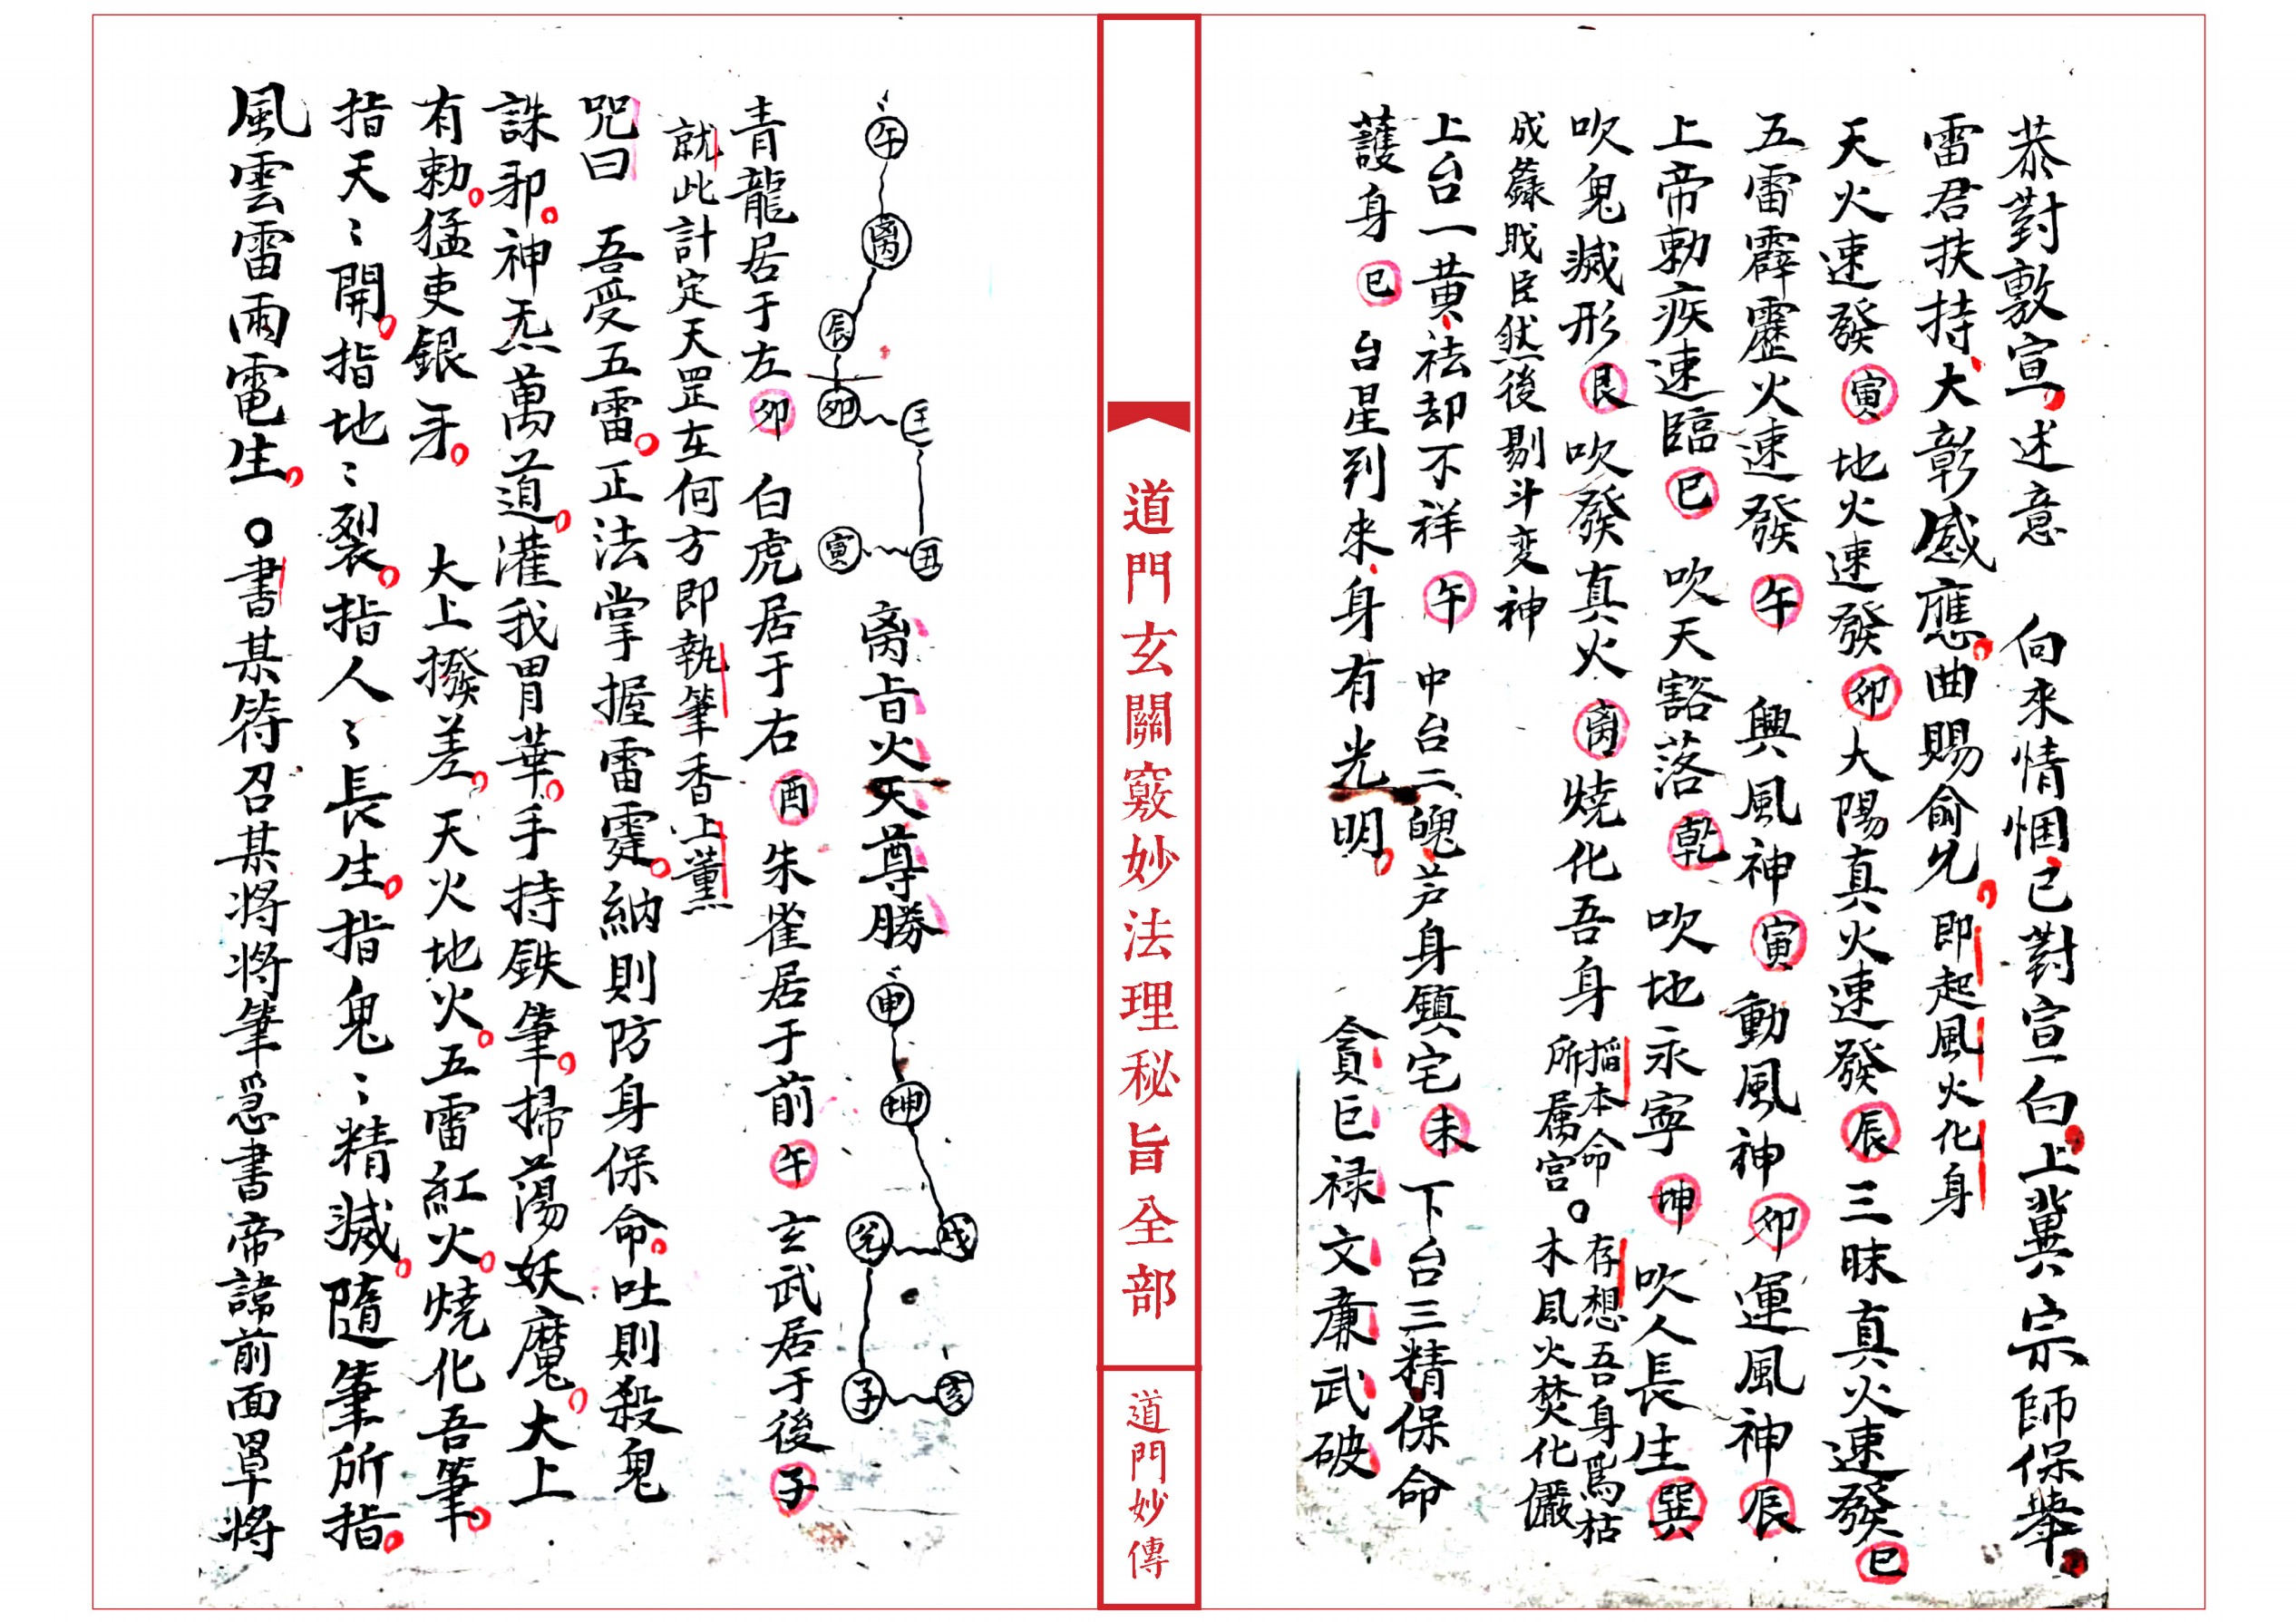 恭對敷宣。述意　向來情悃已對宣白。上冀宗師保舉。
雷君扶持、大彰感應。曲賜俞允。即起風火化身
天火速發寅地火速發卯大陽真火速發辰三昧真火速發巳
五雷霹靂火速發午　興風神寅動風神卯運風神辰
上帝勅疾速臨巳　吹天豁落乾　吹地永寧坤　吹人長生巽
吹鬼滅形艮　吹發真火离燒化吾身　掐本命所属宮○存想吾身爲枯木風火焚化儼
成 臣然後剔斗変神
上台一黄、祛却不祥午　中台二魄、芦身鎮宅未　下台三精保命
護身巳　台星到來、身有光明。　貪巨禄文廉武破
午 离 辰 卯 丑 寅　离旨火天尊勝　申 坤 戌 兑 子 亥
青龍居于左卯　白虎居于右酉　朱雀居于前午　玄武居于後子
就此計定天罡在何方即執筆香上薰
咒曰　吾受五雷。正法掌握雷霆。納則防身保命。吐則殺鬼
誅邪。神炁萬道。灌我胃華。手持鉄筆。掃蕩妖魔。大上
有勅。猛吏銀牙。　大上撥差。天火地火。五雷紅火。燒化吾筆。
指天〻開。指地〻裂。指人〻長生。指鬼〻精滅。隨筆所指。
風雲雷雨電生。○書某符召某將將筆爲書帝諱前面罩將
道門玄關竅妙法理秘旨全部
道門妙傳